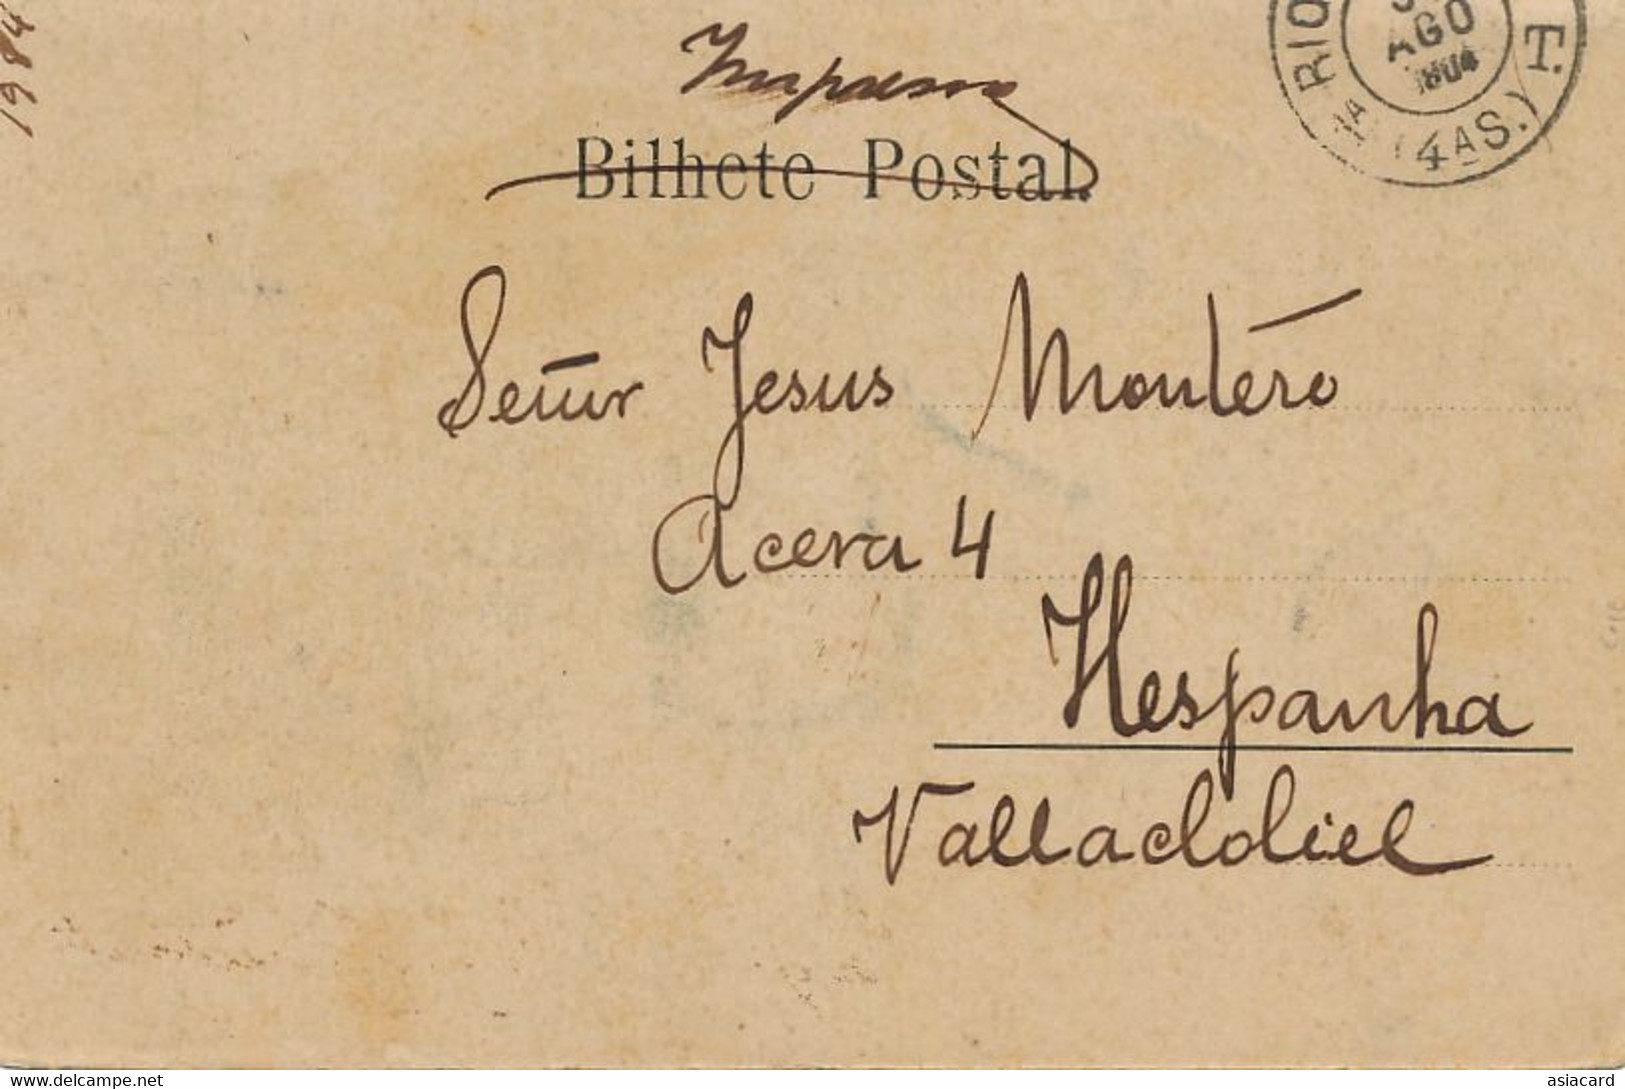 1984
Impresso
Bilhete Postal
RIO
AGO
T.
1A (4AS.)
Señor Jesus Montéro
Acera 4
Hespanha
Valladoliel
www.delcampe.net
asiacard